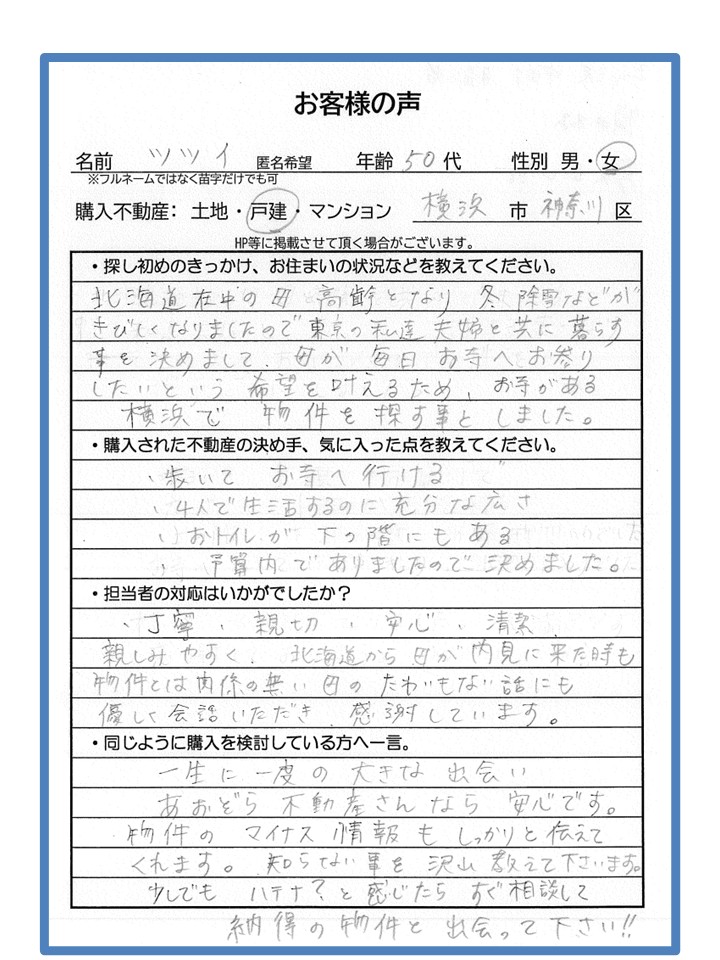 お客様の声
名前 ツツイ 匿名希望 年齢 50代 性別 男・女
※フルネームではなく苗字だけでも可
購入不動産: 土地・戸建・マンション 横浜 市 神奈川 区
HP等に掲載させて頂く場合がございます。
・探し初めのきっかけ、お住まいの状況などを教えてください。
北海道在中の母 高齢となり 冬 除雪などが
きびしくなりましたので東京の私達夫婦と共に暮らす
事を決めまして、母が毎日お寺へお参り
したいという希望を叶えるため、お寺がある
横浜で 物件を探す事としました。
・購入された不動産の決め手、気に入った点を教えてください。
・歩いて お寺へ行ける
・4人で生活するのに充分な広さ
・おトイレが下の階にもある
・予算内でありましたので決めました。
・担当者の対応はいかがでしたか？
・丁寧・親切・安心・清潔
親しみやすく、北海道から母が内見に来た時も
物件とは関係の無い母のたわいもない話にも
優しく会話いただき、感謝しています。
・同じように購入を検討している方へ一言。
一生に一度の大きな出会い
あおぞら不動産さんなら安心です。
物件のマイナス情報もしっかりと伝えて
くれます。知らない事を沢山教えて下さいます。
少しでもハテナ?と感じたらすぐ相談して
納得の物件と出会って下さい!!